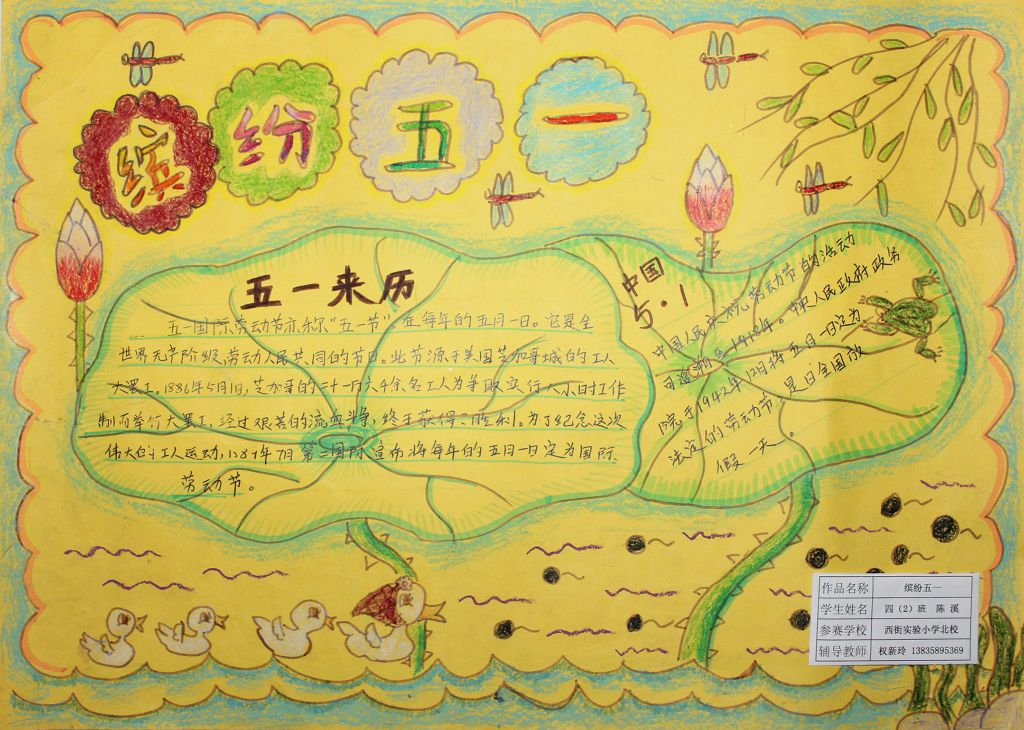 缤纷五一
五一来历
五一国际劳动节亦称“五一节”在每年的五月一日。它是全
世界无产阶级、劳动人民共同的节日。此节源于美国芝加哥城的工人
大罢工。1886年5月1日，芝加哥的二十一万六千余名工人为争取实行八小时工作
制而举行大罢工，经过艰苦的流血斗争，终于获得了胜利。为了纪念这次
伟大的工人运动，1889年7月第二国际宣布将每年的五月一日定为国际
劳动节。
中国
5.1
中国人民庆祝劳动节的活动
可追溯至1918年。中央人民政府政务
院于1949年12月将五月一日定为
法定的劳动节，是日全国放
假一天。
作品名称 缤纷五一
学生姓名 四（2）班 陈溪
参赛学校 西街实验小学北校
辅导教师 权新玲 13835895369